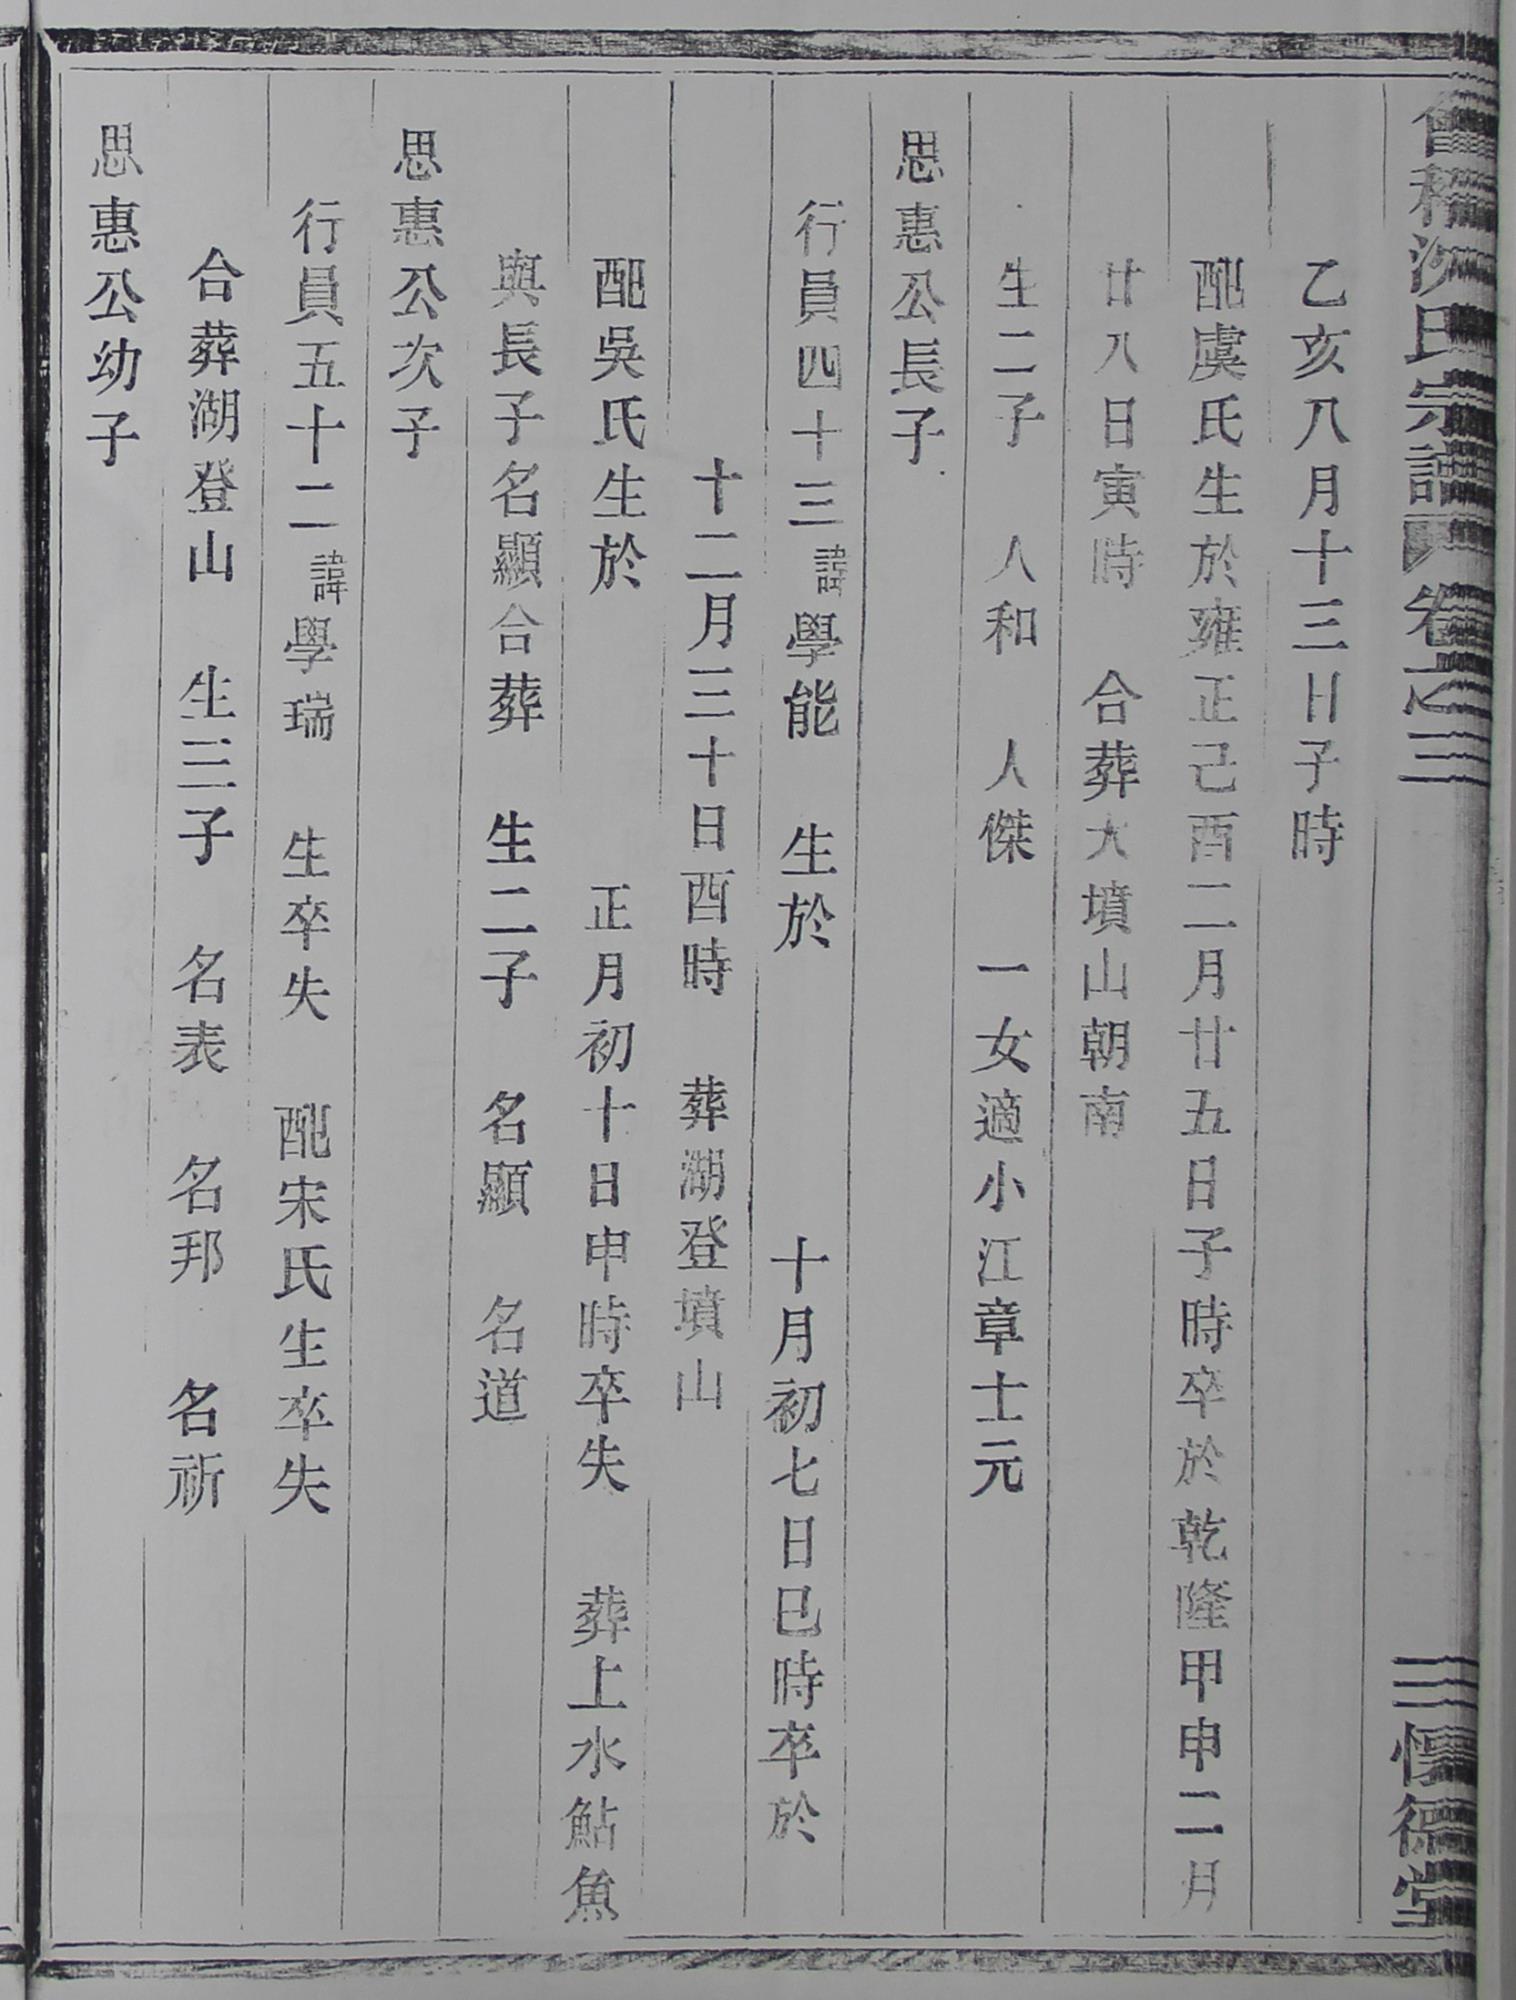 會稽沈氏宗譜 卷之三 三 懷德堂
乙亥八月十三日子時
配虞氏生於雍正己酉二月廿五日子時卒於乾隆甲申二月
廿八日寅時 合葬大墳山朝南
生二子 人和 人傑 一女適小江章士元
思惠公長子
行員四十三諱學能 生於 十月初七日巳時卒於
十二月三十日酉時 葬湖登墳山
配吳氏生於 正月初十日申時卒失 葬上水鮎魚
與長子名顯合葬 生二子 名顯 名道
思惠公次子
行員五十二諱學瑞 生卒失 配宋氏生卒失
合葬湖登山 生三子 名表 名邦 名祈
思惠公幼子